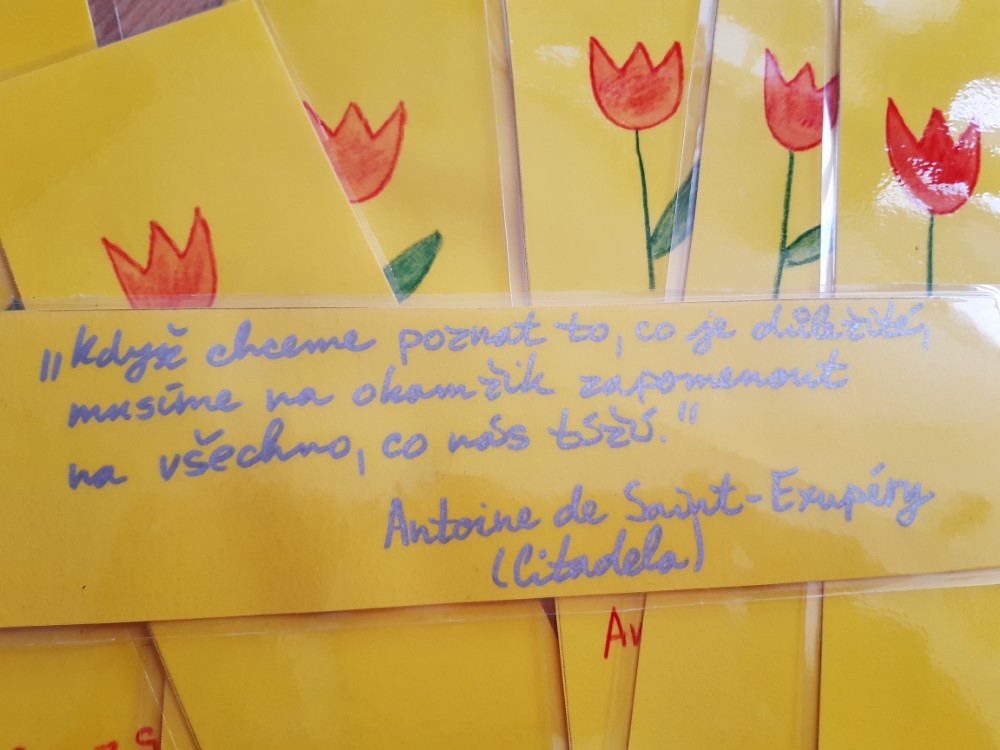 „Když chceme poznat to, co je důležité,
musíme na okamžik zapomenout
na všechno, co nás tíží."
Antoine de Saint-Exupéry
(Citadela)